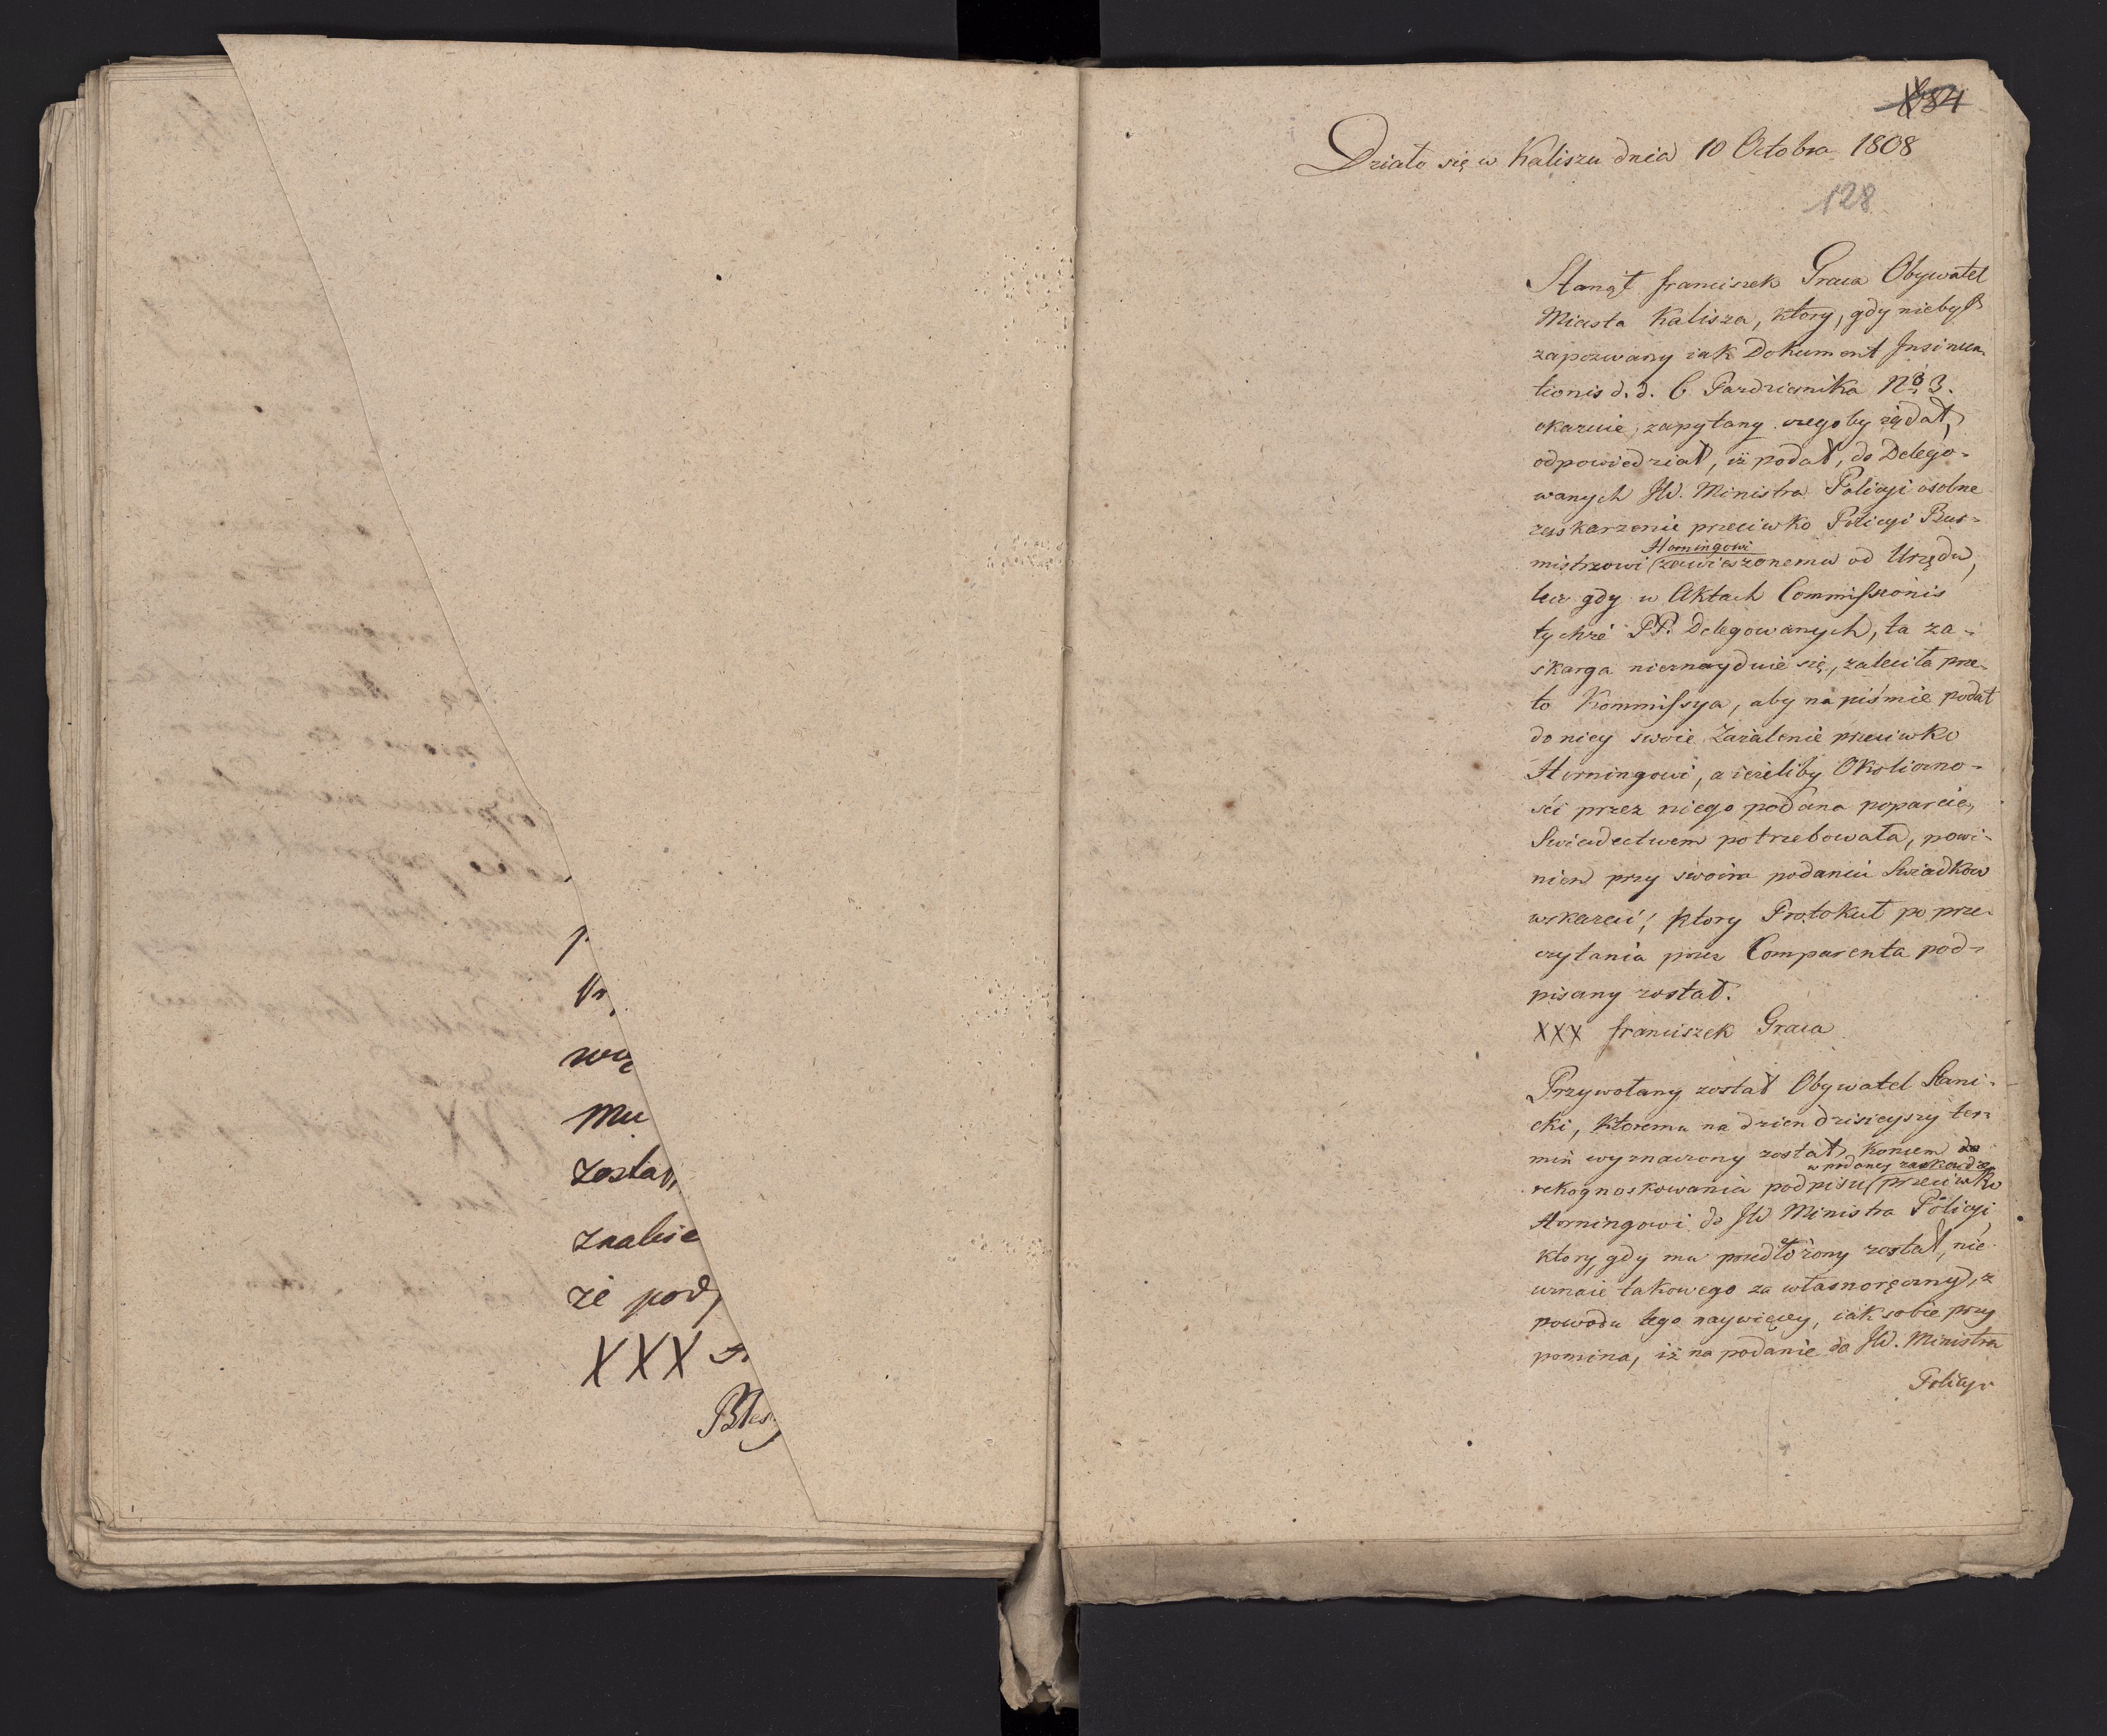 zosta
znalise
że pod
XXX
84
Działo się w Kaliszu dnia 10 Octobra 1808
128
Stanął franciszek Graca Obywatel
Miasta Kalisza, ktory, gdy niebył
zapozwany iak Dokument Insinua-
tionis d. d. 6 Pazdziernika No 3.
okazuie, zapytany czegoby żądał,
odpowiedział, iż podał, do Delego-
wanych JW. Ministra Policyi osobne
zaskarzenie przeciwko Policyi Bur-
Horningowi
mistrzowi zawieszonemu od Urzędu,
lecz gdy w Aktach Commissionis
tychże PP. Delegowanych, ta za-
skarga nieznayduie się, zaleciła prze-
to Kommissya, aby na piśmie podał
do niey swoie Zażalenie przeciwko
Horningowi, a ieżeliby Okoliczno-
ści przez niego podana poparcie,
Swiadectwem potrzebowała, powi-
nien przy swoim podaniu Swiadkow
wskazać, ktory Protokuł po prze-
czytania przez Comparenta pod-
pisany został.
XXX franciszek Graca
Przywołany został Obywatel Stani-
cki, ktoremu na dzien dzisieyszy ter-
min wyznaczony został, koncem do
w podaney zaskardze
rekognoskowania podpisu przeciwko
Horningowi do JW Ministra Policyi
ktory, gdy mu przedłożony został, nie
uznaie takowego za własnoręczny, z
powodu tego naywięcey, iak sobie przy
pomina, iż na podanie do JW. Ministra
Policyi